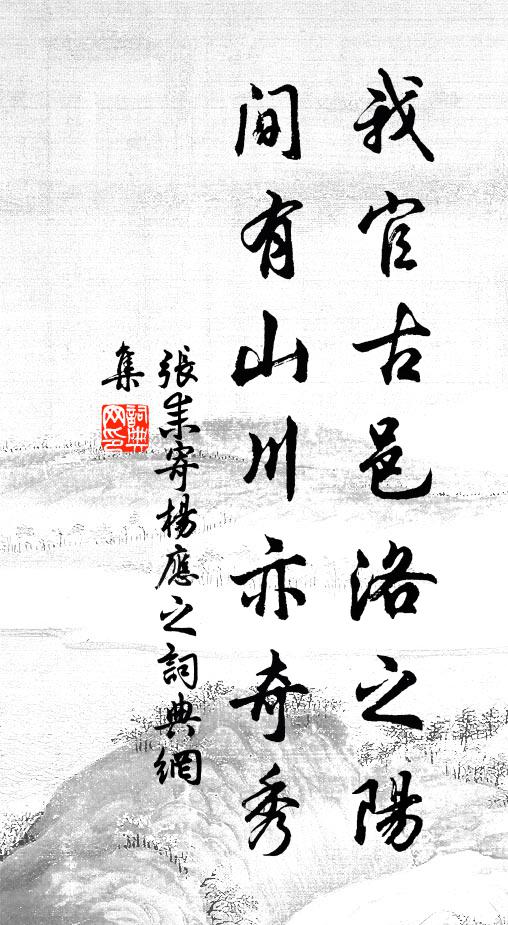 我官古邑洛之陽
間有山川亦奇秀
張耒寄楊應之詞典網
集
詞典網印